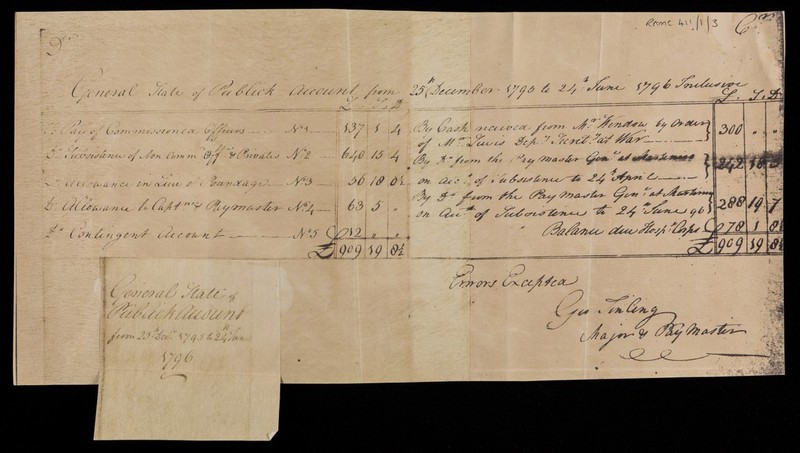 RAMC 411/1/3
Dr
Cr
General State of Publick Account from 25th December 1795 to 24th June 1796 Inclusive
£ S D
£ S D
To Pay of Commissioned Officers No 1 137 1 4
Do Subsistence of Non Commd Offrs & Privates No 2 640 15 4
Do Allowance in Lieu of Poundage No 3 56 18 0½
Do Allowance to Captns & Paymaster No 4 63 5 "
Do Contingent Account No 5 " "
£ 909 19 8½
By Cash received from Mr Window by Order
of Mr Lewis Depy Secrety at War 300 " "
By Do from the Pay Master Genl
on acct of Subsistence to 24th April 242 18
By Do from the Pay Master Genl
on acct of Subsistence to 24th June 96 288 19 7
Balance due Hosp Corps 078 1
£ 909 19 8½
Errors Excepted
Major & Pay Master
General State of
Publick Account
from 25th Decr 1795 to 24th June
1796